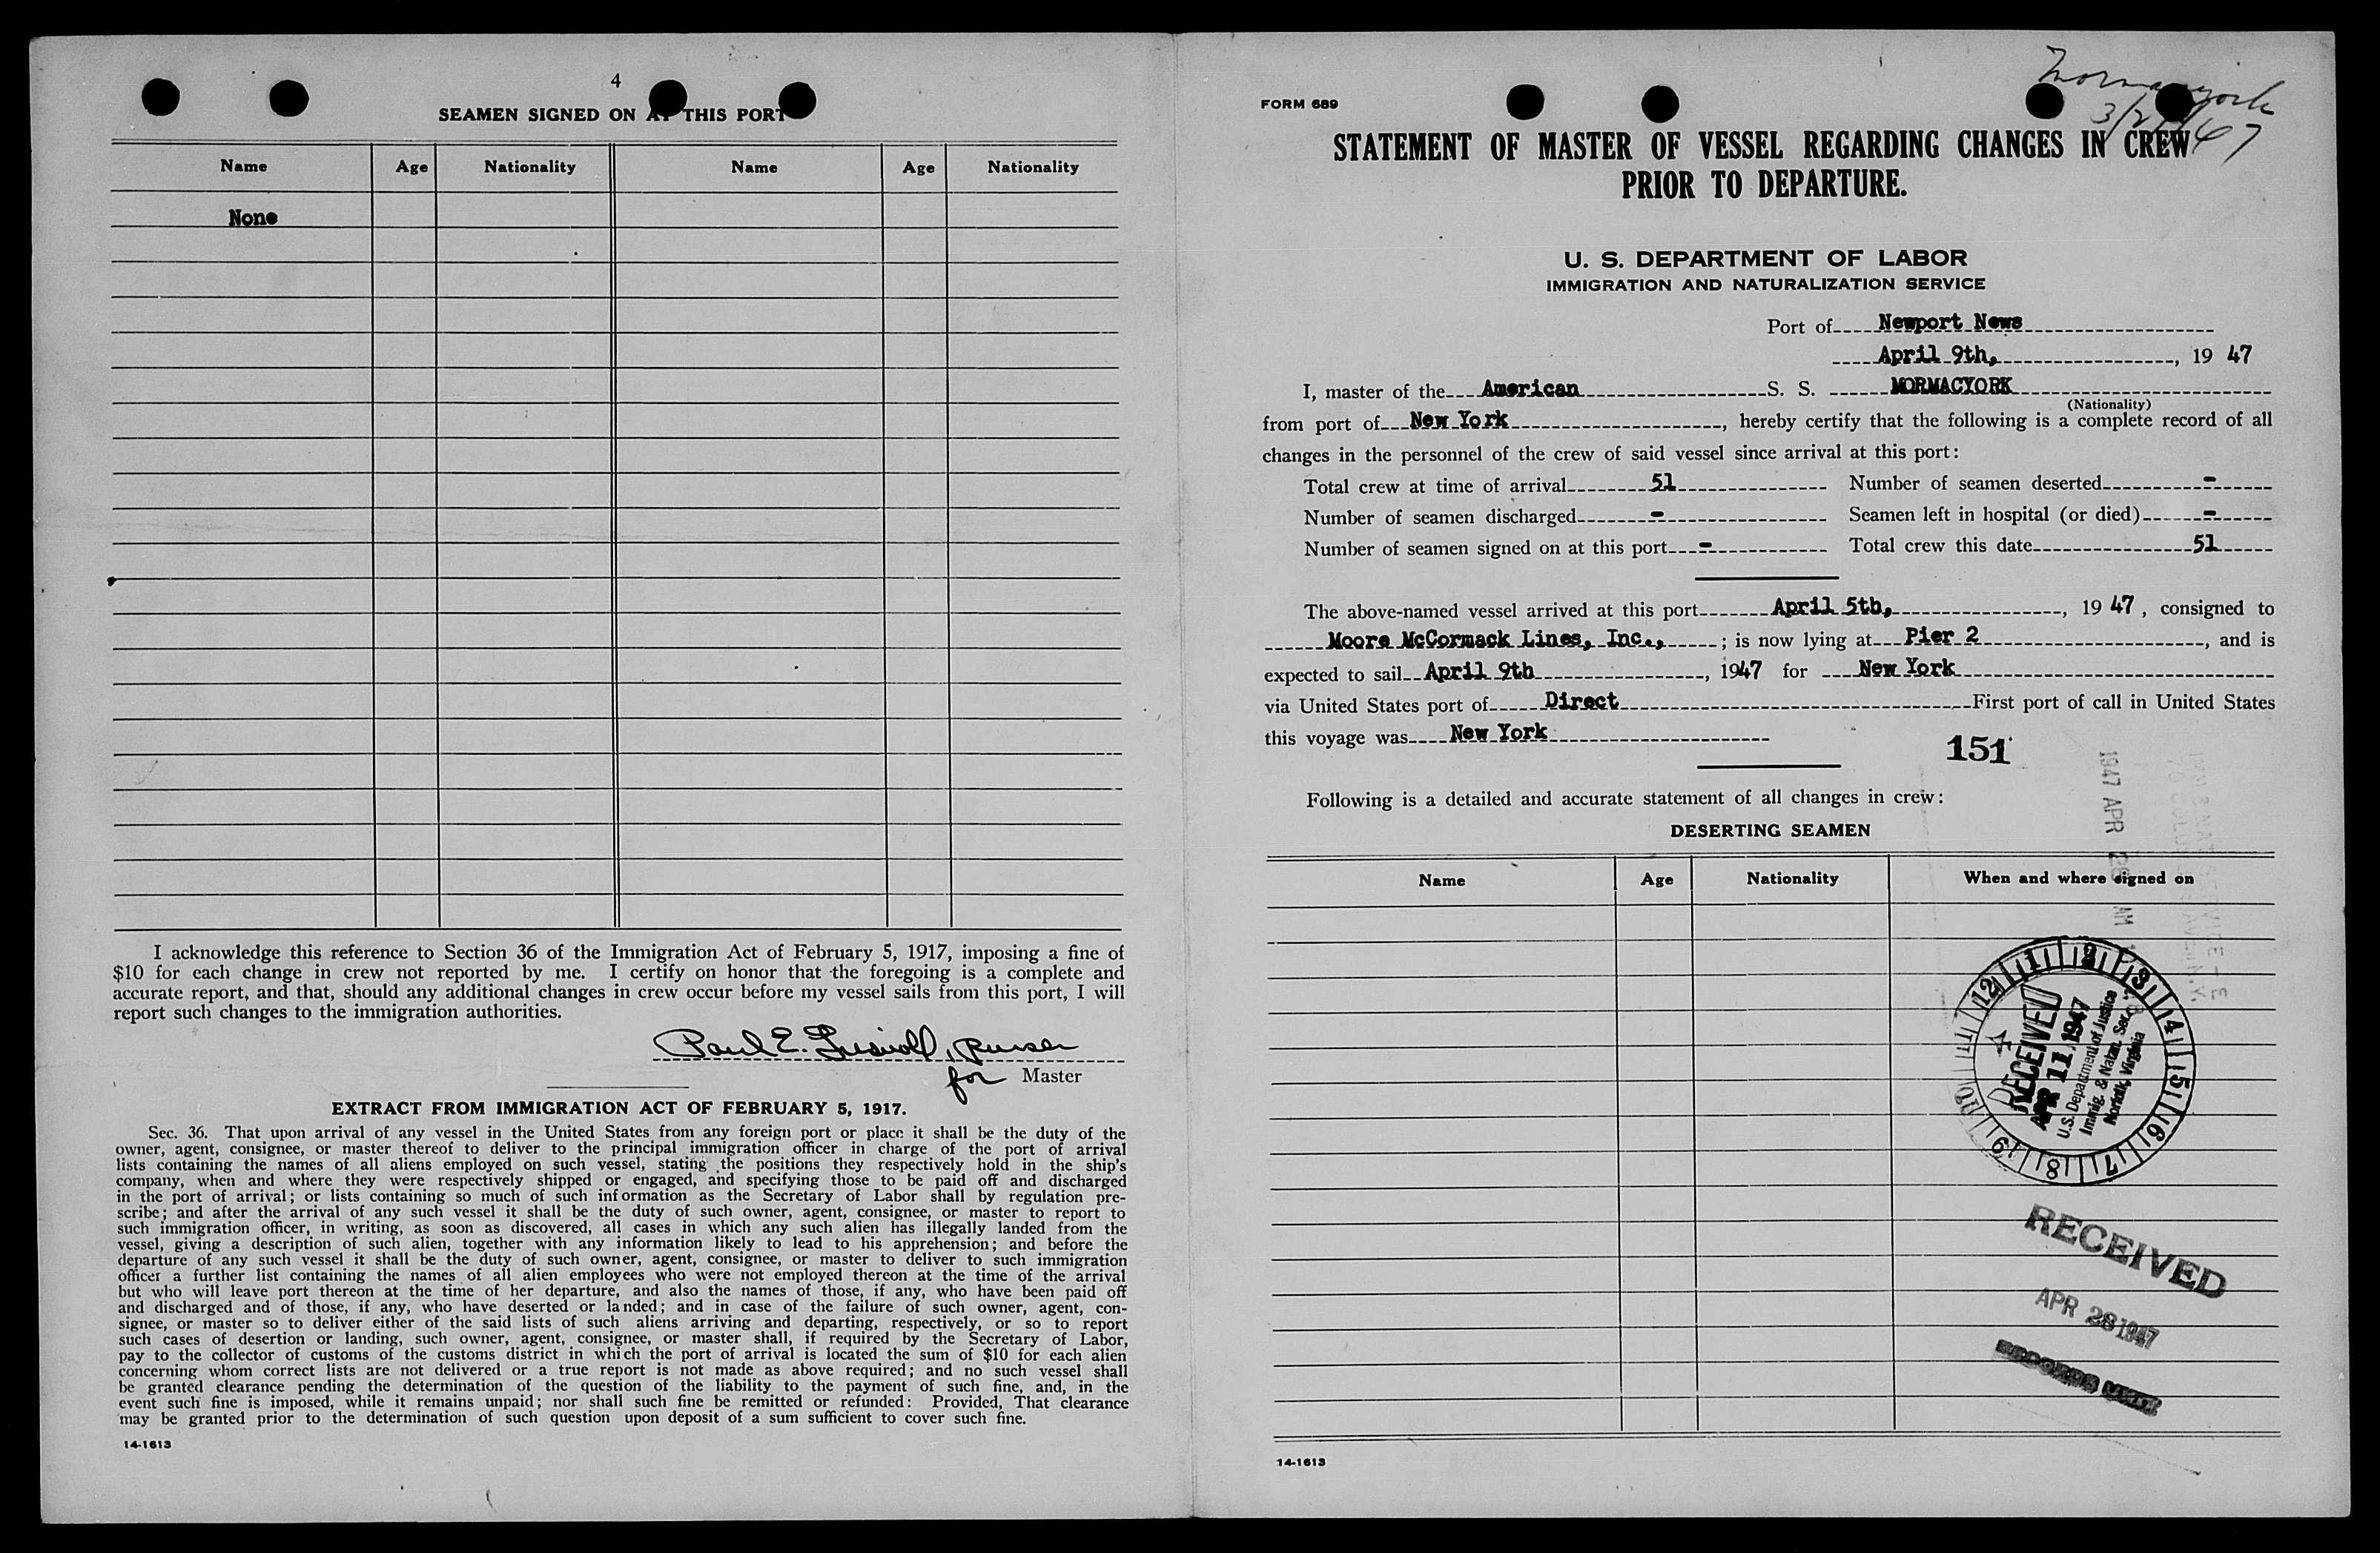 4
SEAMEN SIGNED ON AT THIS PORT
Name Age Nationality Name Age Nationality
None
I acknowledge this reference to Section 36 of the Immigration Act of February 5, 1917, imposing a fine of
$10 for each change in crew not reported by me. I certify on honor that the foregoing is a complete and
accurate report, and that, should any additional changes in crew occur before my vessel sails from this port, I will
report such changes to the immigration authorities.
Paul E. , Purser
for Master
EXTRACT FROM IMMIGRATION ACT OF FEBRUARY 5, 1917.
Sec. 36. That upon arrival of any vessel in the United States from any foreign port or place it shall be the duty of the
owner, agent, consignee, or master thereof to deliver to the principal immigration officer in charge of the port of arrival
lists containing the names of all aliens employed on such vessel, stating the positions they respectively hold in the ship's
company, when and where they were respectively shipped or engaged, and specifying those to be paid off and discharged
in the port of arrival; or lists containing so much of such information as the Secretary of Labor shall by regulation pre-
scribe; and after the arrival of any such vessel it shall be the duty of such owner, agent, consignee, or master to report to
such immigration officer, in writing, as soon as discovered, all cases in which any such alien has illegally landed from the
vessel, giving a description of such alien, together with any information likely to lead to his apprehension; and before the
departure of any such vessel it shall be the duty of such owner, agent, consignee, or master to deliver to such immigration
officer a further list containing the names of all alien employees who were not employed thereon at the time of the arrival
but who will leave port thereon at the time of her departure, and also the names of those, if any, who have been paid off
and discharged and of those, if any, who have deserted or landed; and in case of the failure of such owner, agent, con-
signee, or master so to deliver either of the said lists of such aliens arriving and departing, respectively, or so to report
such cases of desertion or landing, such owner, agent, consignee, or master shall, if required by the Secretary of Labor,
pay to the collector of customs of the customs district in which the port of arrival is located the sum of $10 for each alien
concerning whom correct lists are not delivered or a true report is not made as above required; and no such vessel shall
be granted clearance pending the determination of the question of the liability to the payment of such fine, and, in the
event such fine is imposed, while it remains unpaid; nor shall such fine be remitted or refunded: Provided, That clearance
may be granted prior to the determination of such question upon deposit of a sum sufficient to cover such fine.
14-1613
Mormacyork
FORM 689
STATEMENT OF MASTER OF VESSEL REGARDING CHANGES IN CREW
PRIOR TO DEPARTURE.
U. S. DEPARTMENT OF LABOR
IMMIGRATION AND NATURALIZATION SERVICE
Port of Newport News
April 9th, , 19 47
I, master of the American S. S. MORMACYORK
(Nationality)
from port of New York , hereby certify that the following is a complete record of all
changes in the personnel of the crew of said vessel since arrival at this port:
Total crew at time of arrival 51 Number of seamen deserted -
Number of seamen discharged - Seamen left in hospital (or died) -
Number of seamen signed on at this port - Total crew this date 51
The above-named vessel arrived at this port April 5th, , 19 47, consigned to
Moore McCormack Lines, Inc., ; is now lying at Pier 2 , and is
expected to sail April 9th , 1947 for New York
via United States port of Direct First port of call in United States
this voyage was New York
151
1947 APR 28 AM
Following is a detailed and accurate statement of all changes in crew:
DESERTING SEAMEN
Name Age Nationality When and where signed on
12 1 2 3 4 5 6 7 8 9 10 11
RECEIVED
APR 11 1947
U.S. Department of Justice
Immig. & Natzn. Ser.
Norfolk, Virginia
RECEIVED
APR 28 1947
RECORDS UNIT
14-1613